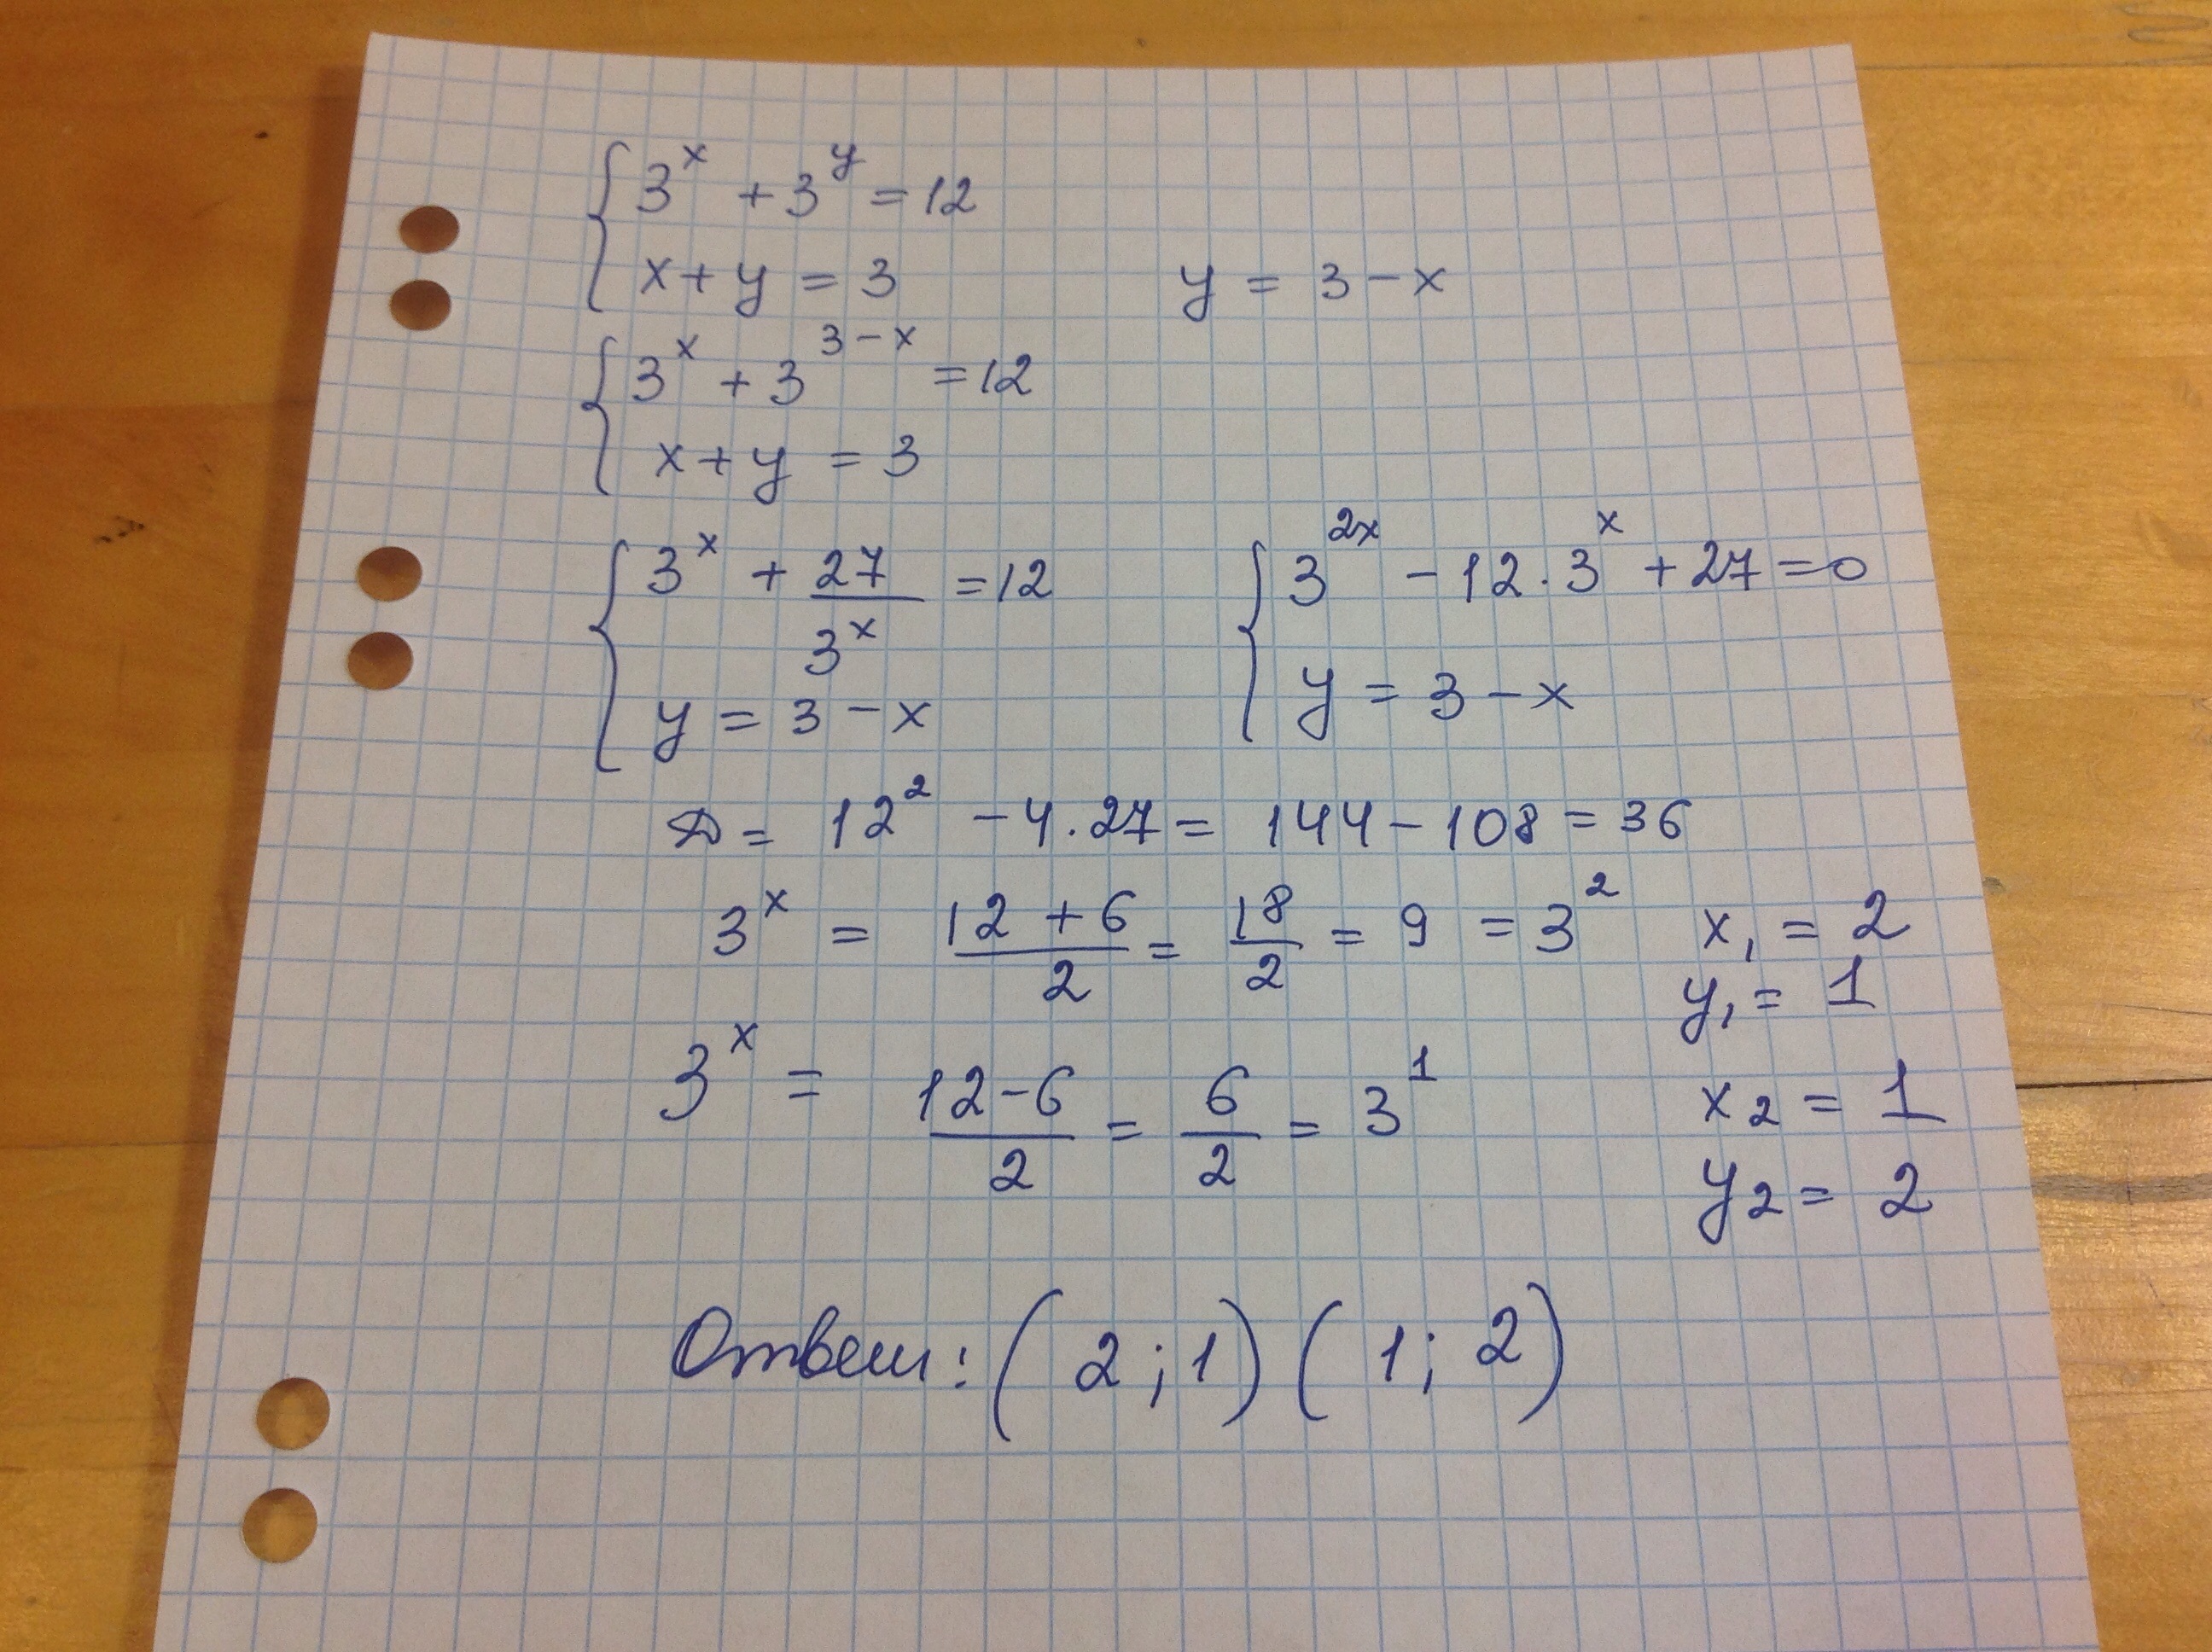 3^x + 3^y = 12
x + y = 3 y = 3 - x
3^x + 3^(3-x) = 12
x + y = 3
3^x + 27/3^x = 12 3^(2x) - 12 · 3^x + 27 = 0
y = 3 - x y = 3 - x
D = 12^2 - 4 · 27 = 144 - 108 = 36
3^x = (12 + 6)/2 = 18/2 = 9 = 3^2 x₁ = 2
y₁ = 1
3^x = (12 - 6)/2 = 6/2 = 3^1 x₂ = 1
y₂ = 2
Ответ: (2; 1) (1; 2)